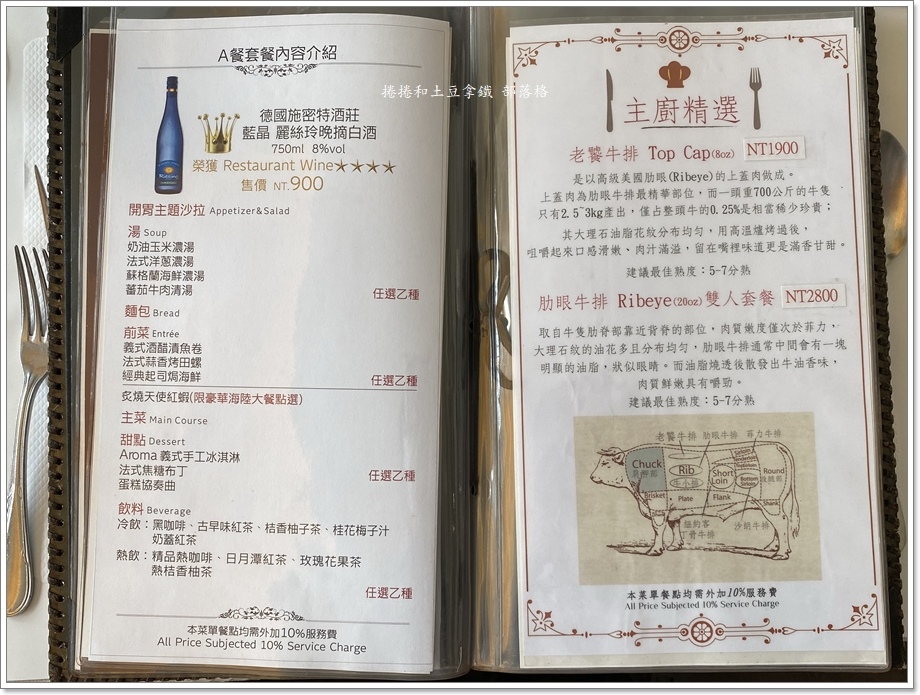 A餐套餐內容介紹
德國施密特酒莊
藍晶 麗絲玲晚摘白酒
750ml 8%vol
榮獲 Restaurant Wine★★★★
售價 NT.900
開胃主題沙拉 Appetizer&Salad
湯 Soup
奶油玉米濃湯
法式洋蔥濃湯
蘇格蘭海鮮濃湯
蕃茄牛肉清湯
任選乙種
麵包 Bread
前菜 Entrée
義式酒醋漬魚卷
法式蒜香烤田螺
經典起司焗海鮮
任選乙種
炙燒天使紅蝦(限豪華海陸大餐點選)
主菜 Main Course
甜點 Dessert
Aroma 義式手工冰淇淋
法式焦糖布丁
蛋糕協奏曲
任選乙種
飲料 Beverage
冷飲：黑咖啡、古早味紅茶、桔香柚子茶、桂花梅子汁
奶蓋紅茶
熱飲：精品熱咖啡、日月潭紅茶、玫瑰花果茶
熱桔香柚茶
任選乙種
本菜單餐點均需外加10%服務費
All Price Subjected 10% Service Charge
捲捲和土豆拿鐵 部落格
主廚精選
老饕牛排 Top Cap(8oz) NT1900
是以高級美國肋眼(Ribeye)的上蓋肉做成。
上蓋肉為肋眼牛排最精華部位，而一頭重700公斤的牛隻
只有2.5~3kg產出，僅占整頭牛的0.25%是相當稀少珍貴；
其大理石油脂花紋分布均勻，用高溫爐烤過後，
咀嚼起來口感滑嫩、肉汁滿溢，留在嘴裡味道更是滿香甘甜。
建議最佳熟度：5-7分熟
肋眼牛排 Ribeye(20oz)雙人套餐 NT2800
取自牛隻肋脊部靠近背脊的部位，肉質嫩度僅次於菲力，
大理石紋的油花多且分布均勻，肋眼牛排通常中間會有一塊
明顯的油脂，狀似眼睛。而油脂燒透後散發出牛油香味，
肉質鮮嫩具有嚼勁。
建議最佳熟度：5-7分熟
老饕牛排 肋眼牛排 菲力牛排
Chuck
Rib
牛小排
Short Loin
Sirloin
Tenderloin
Bottom Sirloin
Round
Brisket
Plate
Flank
Shank
紐約客
丁骨牛排
沙朗牛排
本菜單餐點均需外加10%服務費
All Price Subjected 10% Service Charge